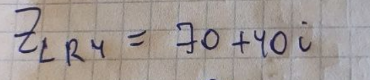 Z_{LR4} = 70 + 40i